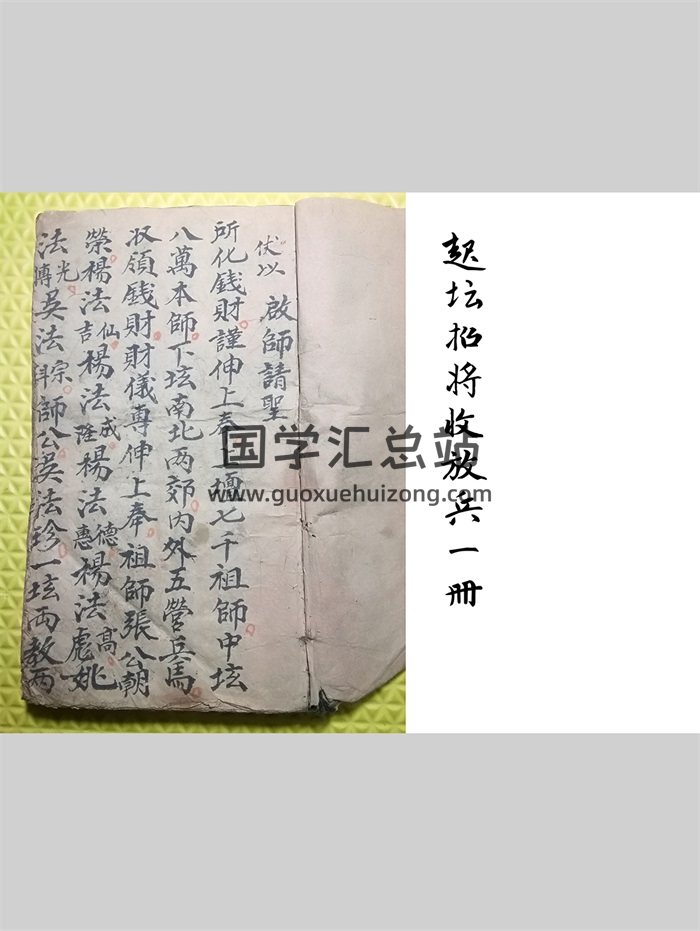 起坛招将收放兵一册
伏以 啟師請聖
所化錢財謹伸上奉上壇七千祖師中坛
八萬本師下坛南北两郊内外五營兵馬
収領錢財財儀專伸上奉祖師張公朝
榮楊法仙吉楊法成隆楊法德惠楊法高彪姚
法光傳吴法宗科師公吴法珍一坛两教两
国学汇总站
www.guoxuehuizong.com